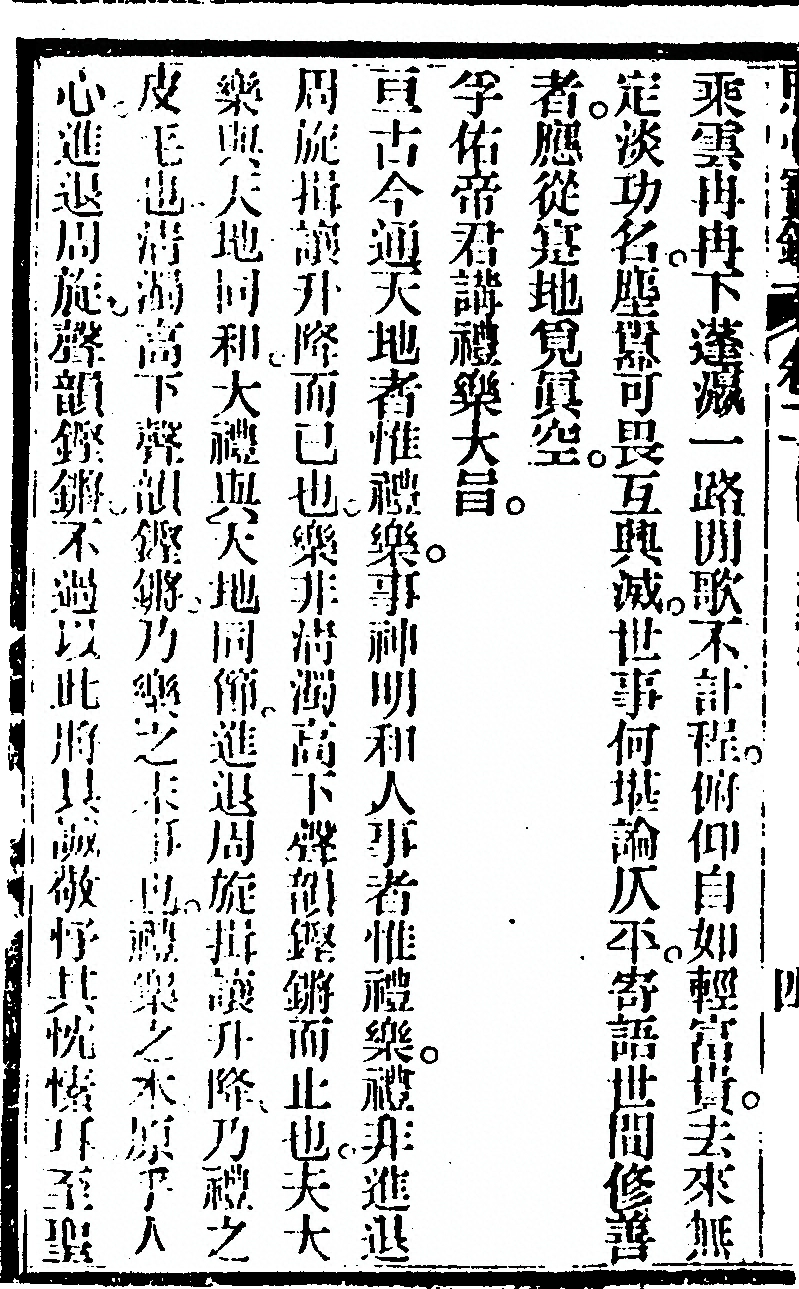 乘雲冉冉下蓬瀛一路閒歌不計程。俯仰自如輕富貴。去來無
定淡功名。塵囂可畏互興滅。世事何堪論仄平。寄語世間修善
者。應從寔地覓眞空。
孚佑帝君講禮樂大旨。
亘古今通天地者惟禮樂。事神明和人事者惟禮樂。禮非進退
周旋揖讓升降而已也。樂非清濁高下聲韻鏗鏘而止也。夫大
樂與天地同和。大禮與天地同節。進退周旋揖讓升降、乃禮之
皮毛也。清濁高下聲韻鏗鏘。乃樂之末事也。禮樂之本原乎人
心。進退周旋。聲韻鏗鏘。不過以此將其誠敬抒其忱愫耳。至聖
卷二
四